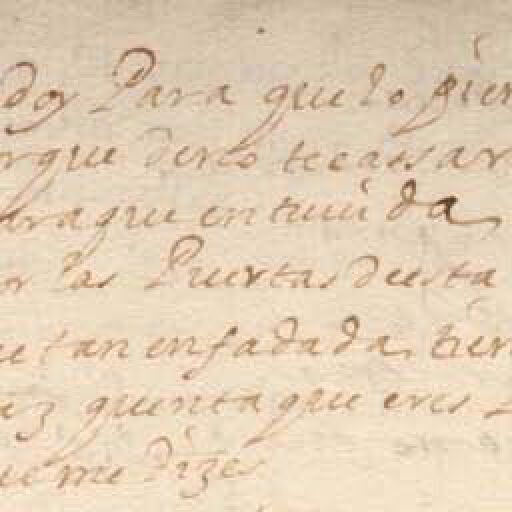 doy Para que lo pien
rque deseo te cassar
ara que en tu vida
or las Puertas de esta
e tan enfadada tien
az quenta que eres
ue me dizes